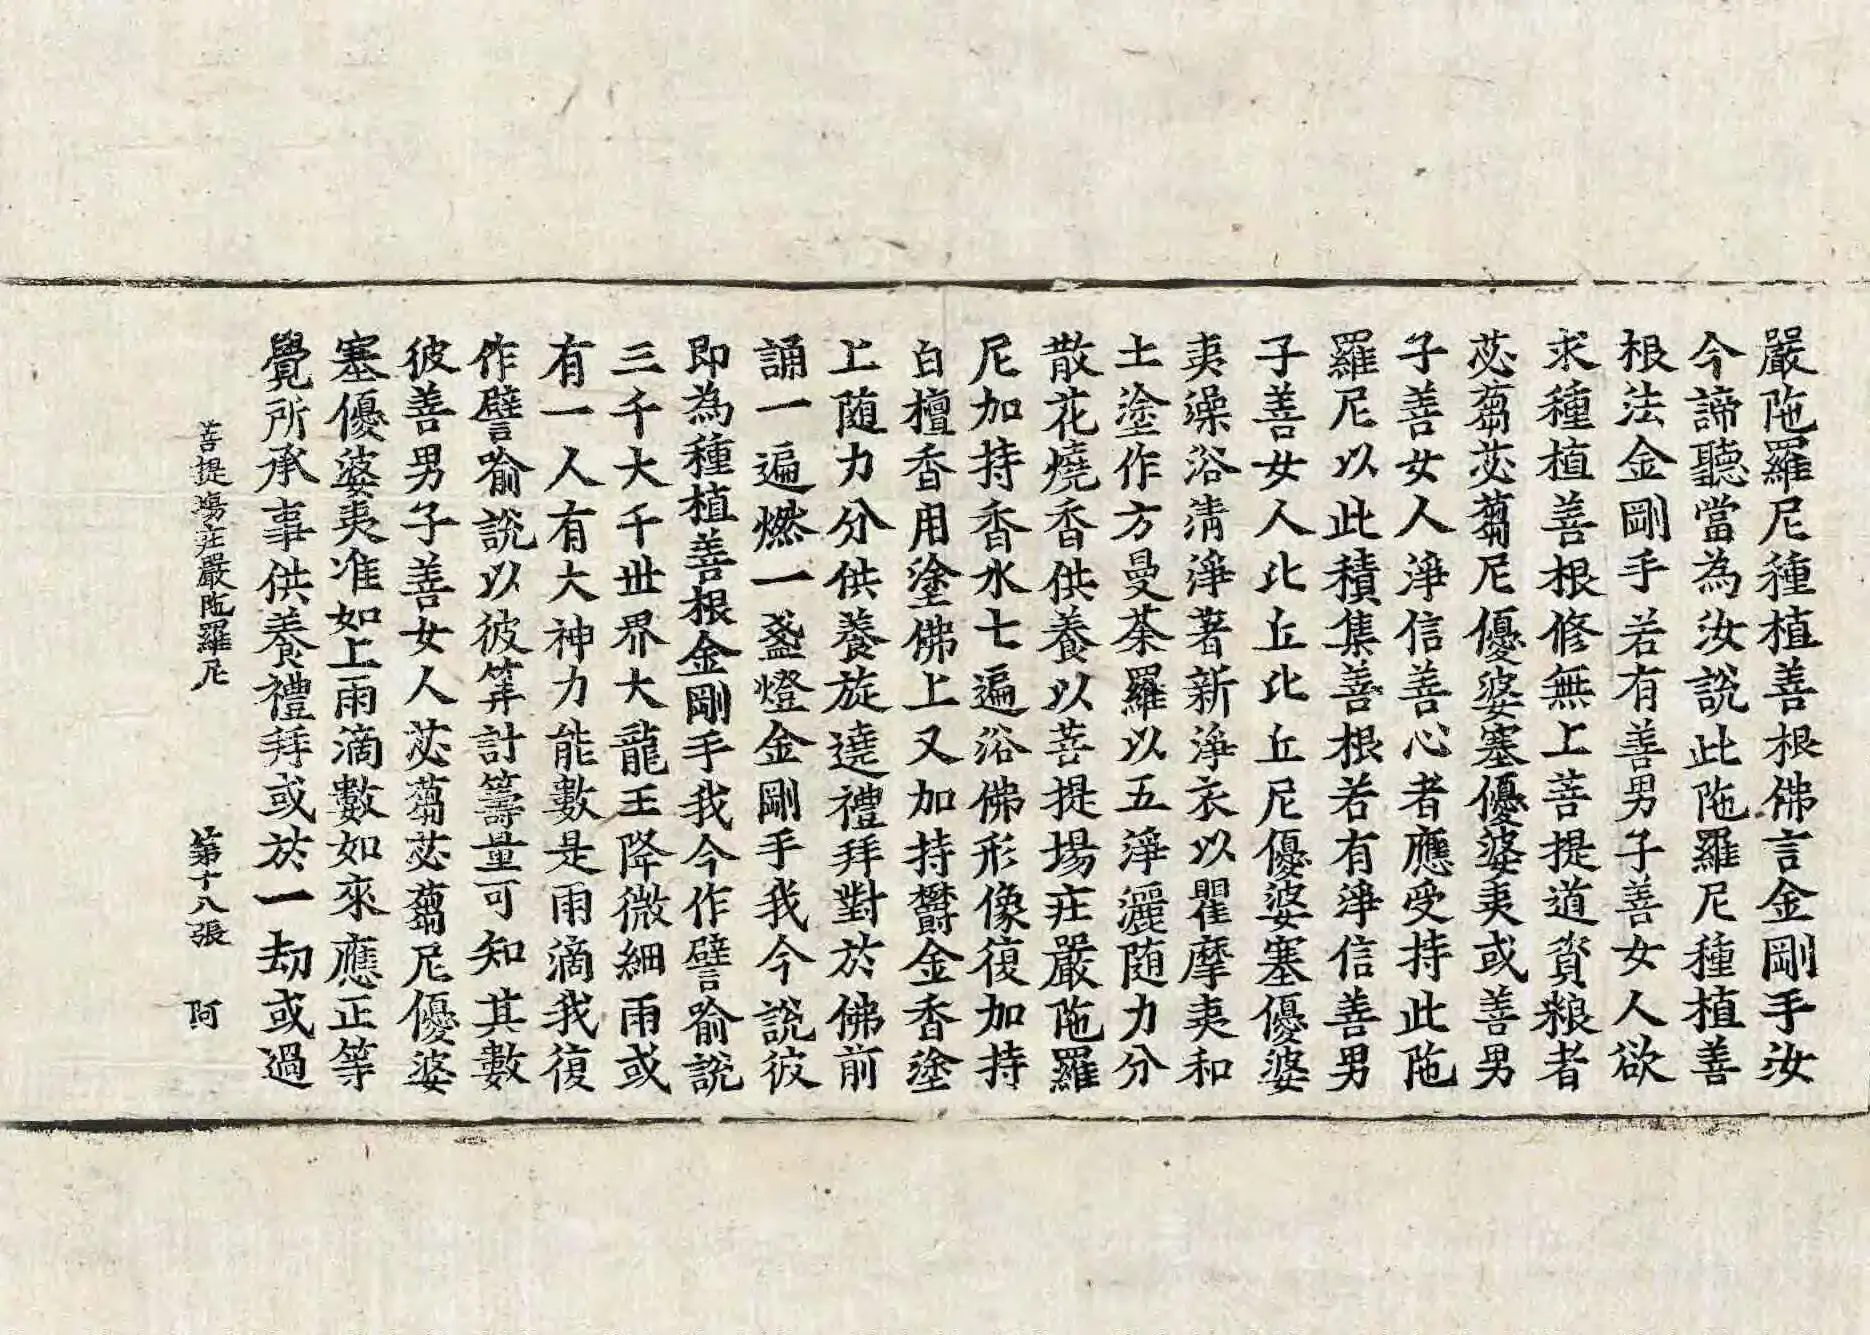 嚴陁羅尼種植善根佛言金剛手汝
今諦聽當為汝說此陁羅尼種植善
根法金剛手若有善男子善女人欲
求種植善根修無上菩提道資粮者
苾蒭苾蒭尼優婆塞優婆夷或善男
子善女人淨信善心者應受持此陁
羅尼以此積集善根若有淨信善男
子善女人比丘比丘尼優婆塞優婆
夷澡浴清淨著新淨衣以瞿摩夷和
土塗作方曼荼羅以五淨灑随力分
散花燒香供養以菩提場莊嚴陁羅
尼加持香水七遍浴佛形像復加持
白檀香用塗佛上又加持欝金香塗
上随力分供養旋遶禮拜對於佛前
誦一遍燃一盞燈金剛手我今說彼
即為種植善根金剛手我今作譬喻說
三千大千世界大龍王降微細雨或
有一人有大神力能數是雨滴我復
作譬喻說以彼筭計籌量可知其數
彼善男子善女人苾蒭苾蒭尼優婆
塞優婆夷准如上雨滴數如來應正等
覺所承事供養禮拜或於一劫或過
菩提塲莊嚴陁羅尼 第十八張 阿